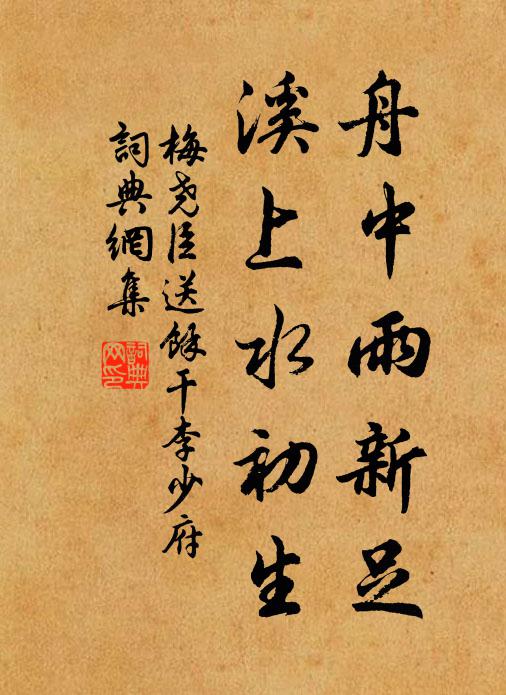 舟中雨新足
溪上水初生
梅尧臣送餘干李少府
詞典網集
詞典網印